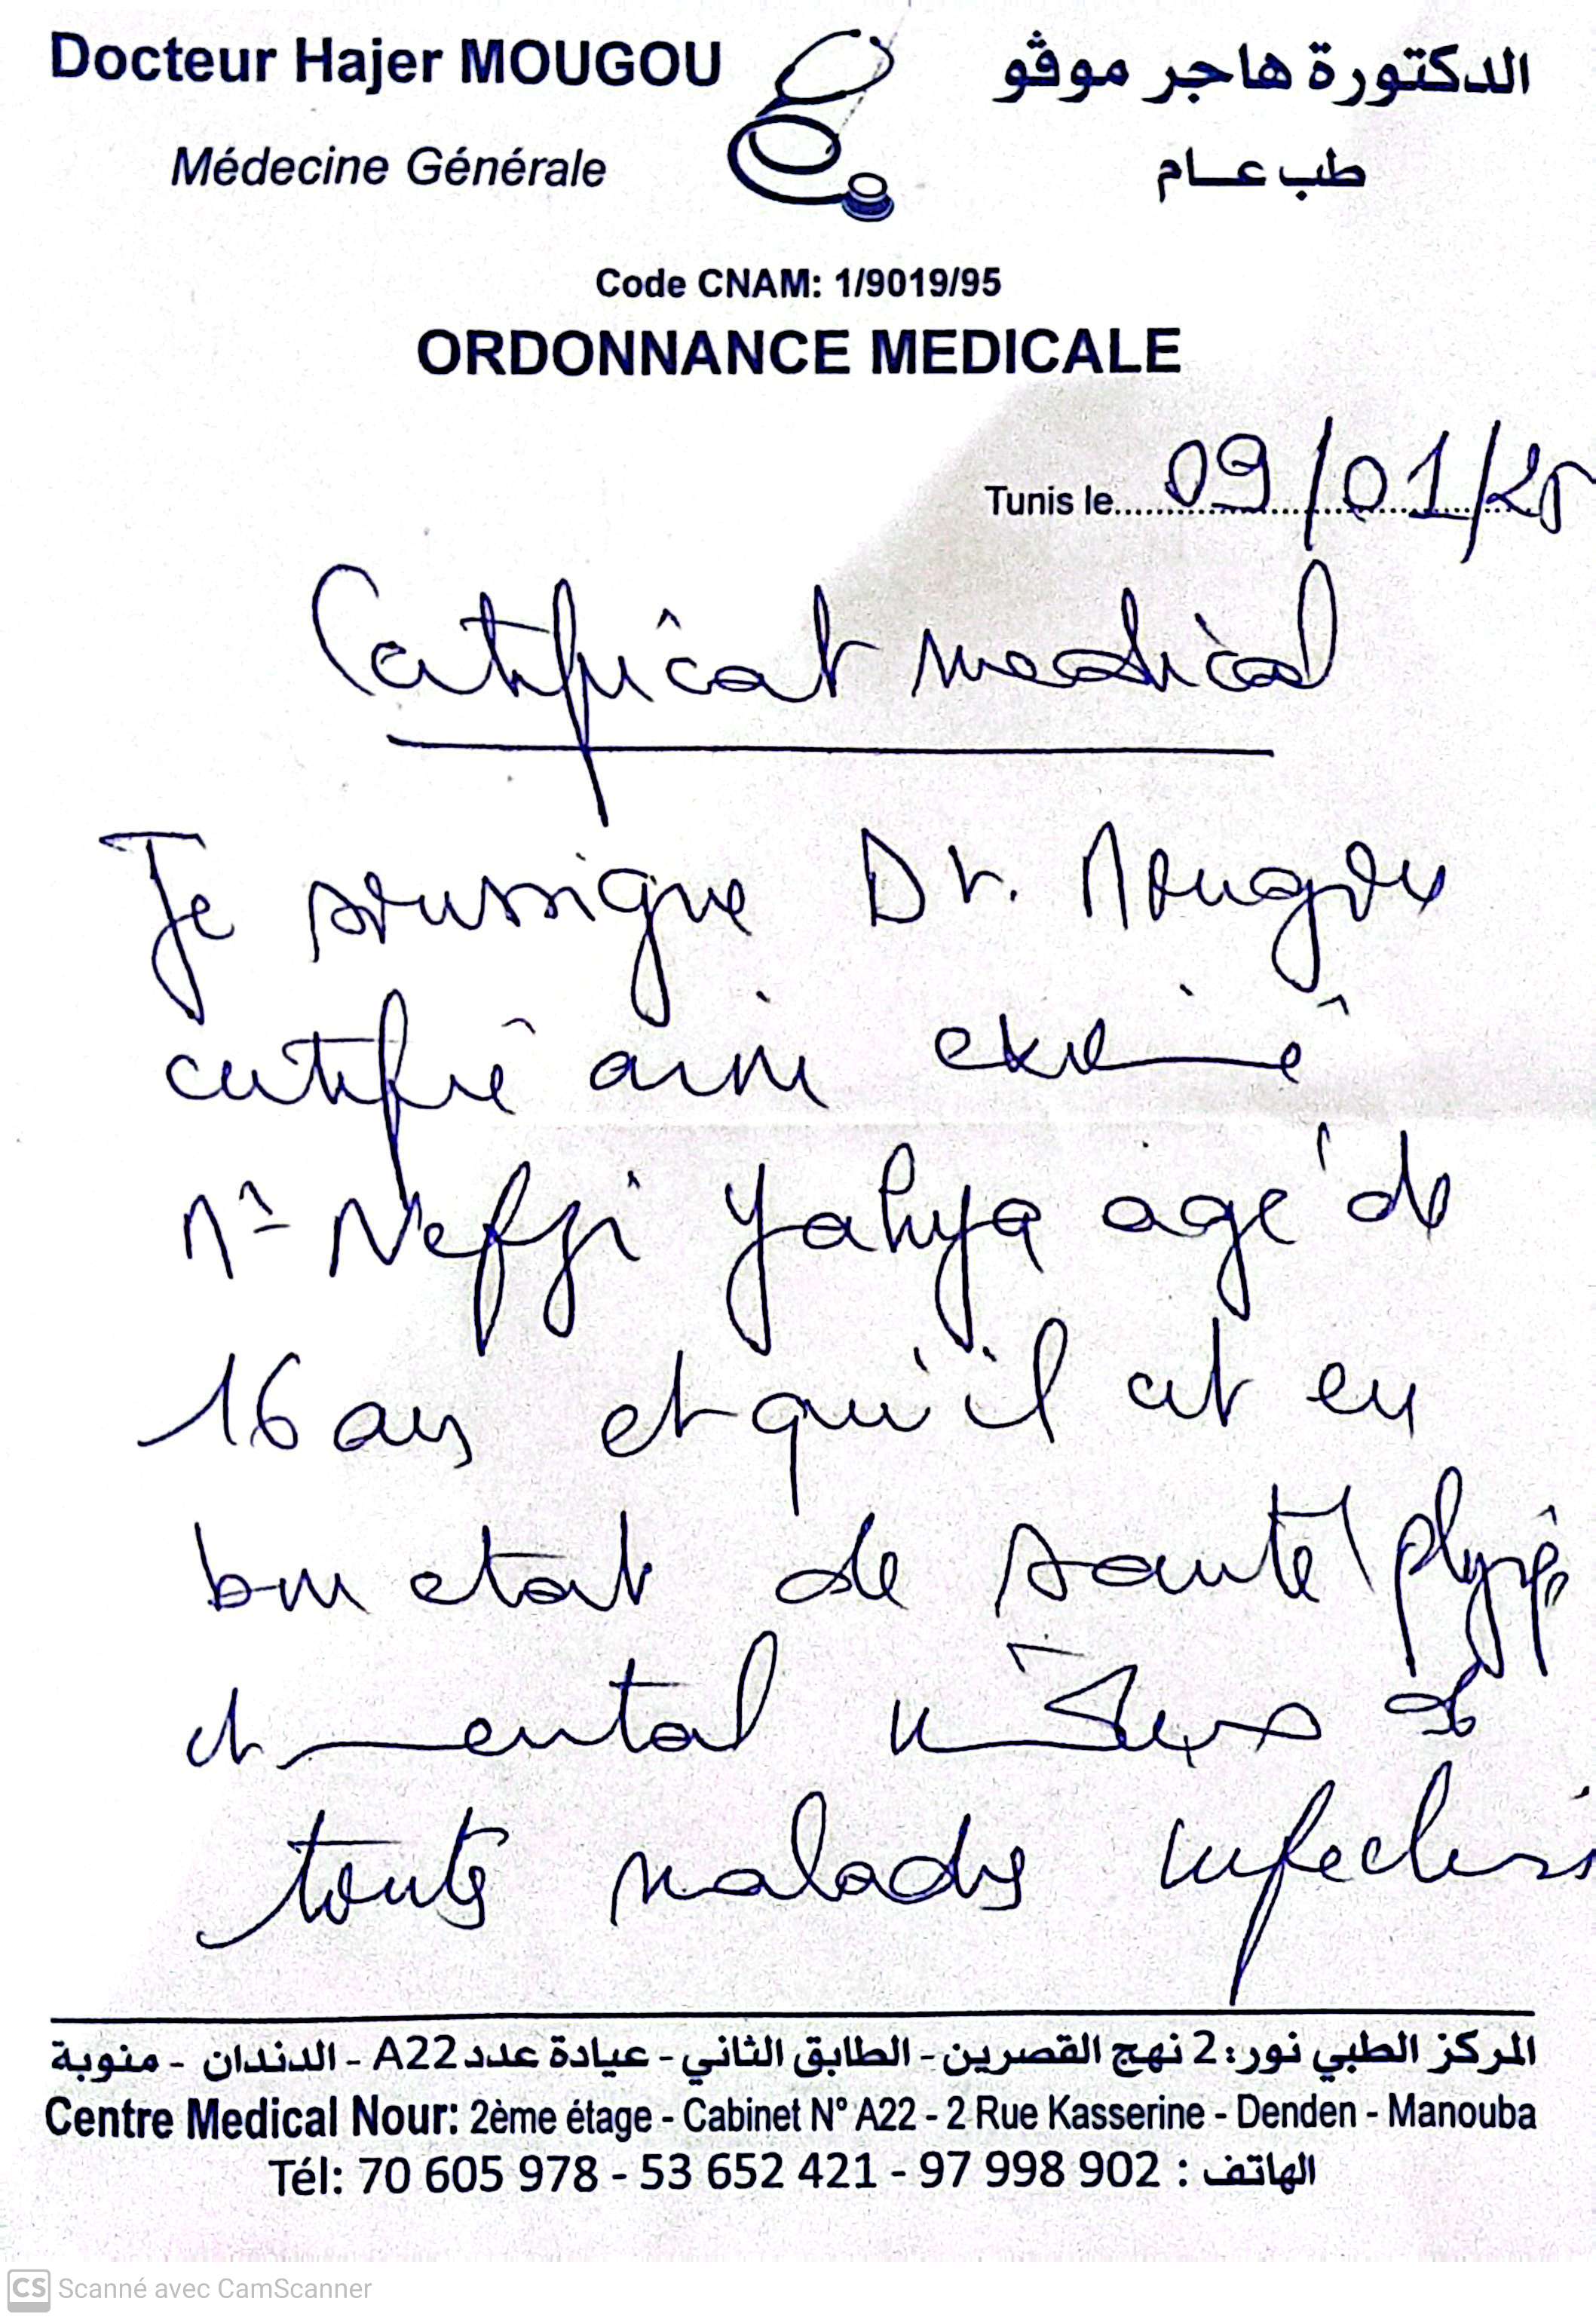 Docteur Hajer MOUGOU
الدكتورة هاجر موڤو
Médecine Générale
طب عــام
Code CNAM: 1/9019/95
ORDONNANCE MEDICALE
Tunis le 09/01/25
Certificat medical
Je soussigne Dr. Mougou
certifié avoir examiné
Mr Nefzi Yahya agé de
16 ans et qu'il est en
bon etat de santé physiq
et mental indemne de
toutes maladies infectieuses
المركز الطبي نور: 2 نهج القصرين - الطابق الثاني - عيادة عدد A22 - الدندان - منوبة
Centre Medical Nour: 2ème étage - Cabinet N° A22 - 2 Rue Kasserine - Denden - Manouba
Tél: 70 605 978 - 53 652 421 - 97 998 902 : الهاتف
CS Scanné avec CamScanner